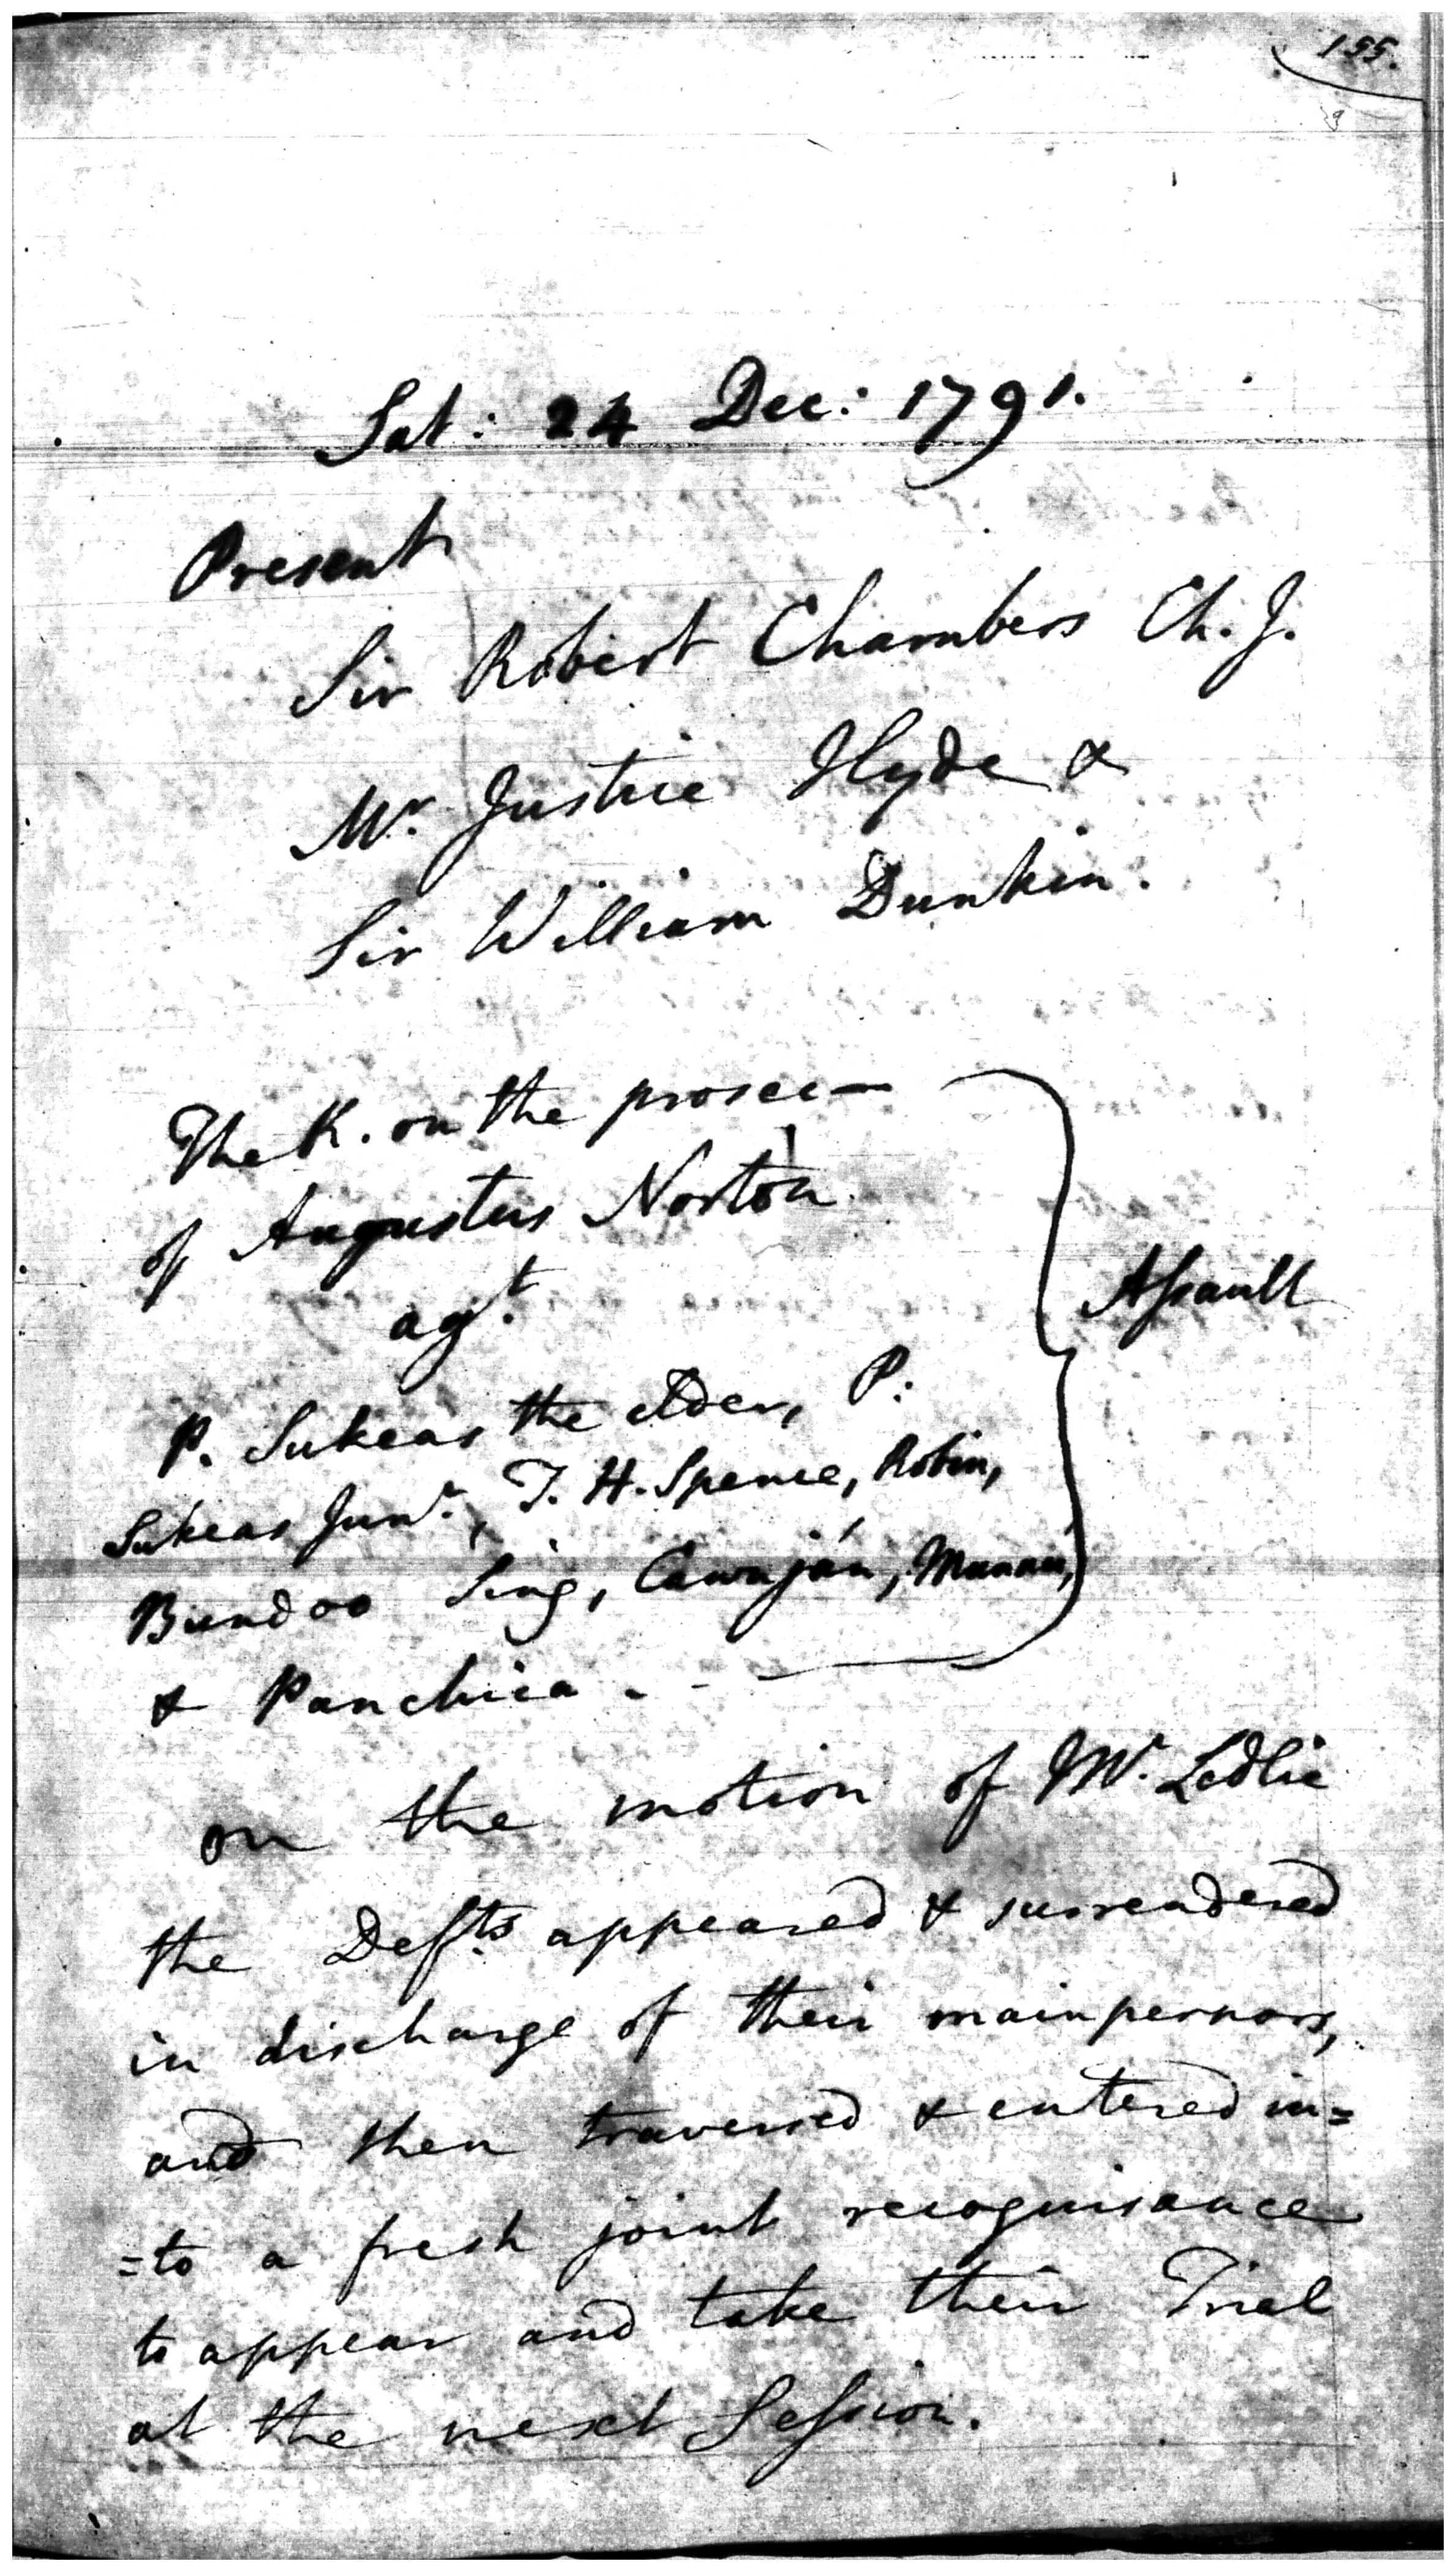 155.
Sat: 24 Dec: 1791.
Present
Sir Robert Chambers Ch. J.
Mr. Justice Hyde &
Sir William Dunkin.
The K. on the prosec—
of Augustus Norton
agt.
Assault
P. Sukeas the elder, P.
Sukeas Junr., T. H. Spence, Robin,
Bundoo Sing, Cawnján,
& Panchica . - -
on the motion of Mr. Ledlie
the Defts. appeared & surrendered
in discharge of their mainpernors,
and then traversed & entered in=
=to a fresh joint recognisance
to appear and take their Trial
at the next Session.